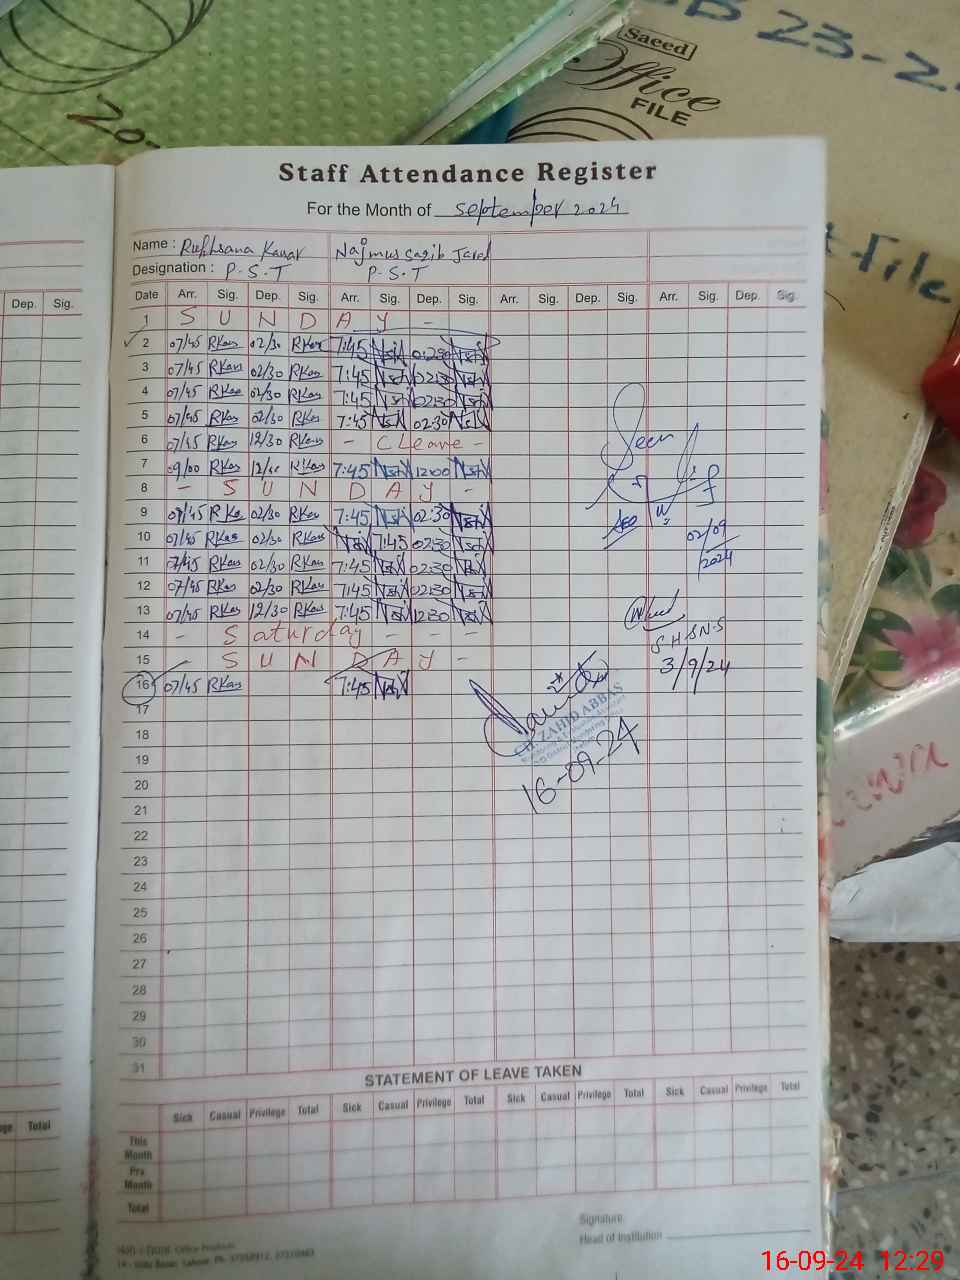 No
Saeed
Office
FILE
23-2
File
Staff Attendance Register
For the Month of September 2024
Name : Rukhsana Kausar Najmus Saqib Javed
Designation : P.S.T P.S.T
Dep. Sig. Date Arr. Sig. Dep. Sig. Arr. Sig. Dep. Sig. Arr. Sig. Dep. Sig. Arr. Sig. Dep. Sig.
1 S U N D A Y -
2 07/45 RKau 02/30 RKau 7:45 02:30
3 07/45 RKau 02/30 RKau 7:45 02:30
4 07/45 RKau 02/30 RKau 7:45 02:30
5 07/45 RKau 02/30 RKau 7:45 02:30
6 07/45 RKau 12/30 RKau - C Leave -
7 09/00 RKau 12/00 RKau 7:45 12:00
8 - S U N D A Y -
9 07/45 RKau 02/30 RKau 7:45 02:30
10 07/45 RKau 02/30 RKau 7:45 02:30
11 07/45 RKau 02/30 RKau 7:45 02:30
12 07/45 RKau 02/30 RKau 7:45 02:30
13 07/45 RKau 12/30 RKau 7:45 12:30
14 - Saturday - - -
15 S U N D A Y -
16 07/45 RKau 7:45
17
18
19
20
21
22
23
24
25
26
27
28
29
30
31
Seen
02/09
2024
S H S N-S
3/9/24
CH. ZAHID ABBAS
16-09-24
STATEMENT OF LEAVE TAKEN
Total Sick Casual Privilege Total Sick Casual Privilege Total Sick Casual Privilege Total Sick Casual Privilege Total
This Month
Pre. Month
Total
Signature
Head of Institution
16-09-24 12:29